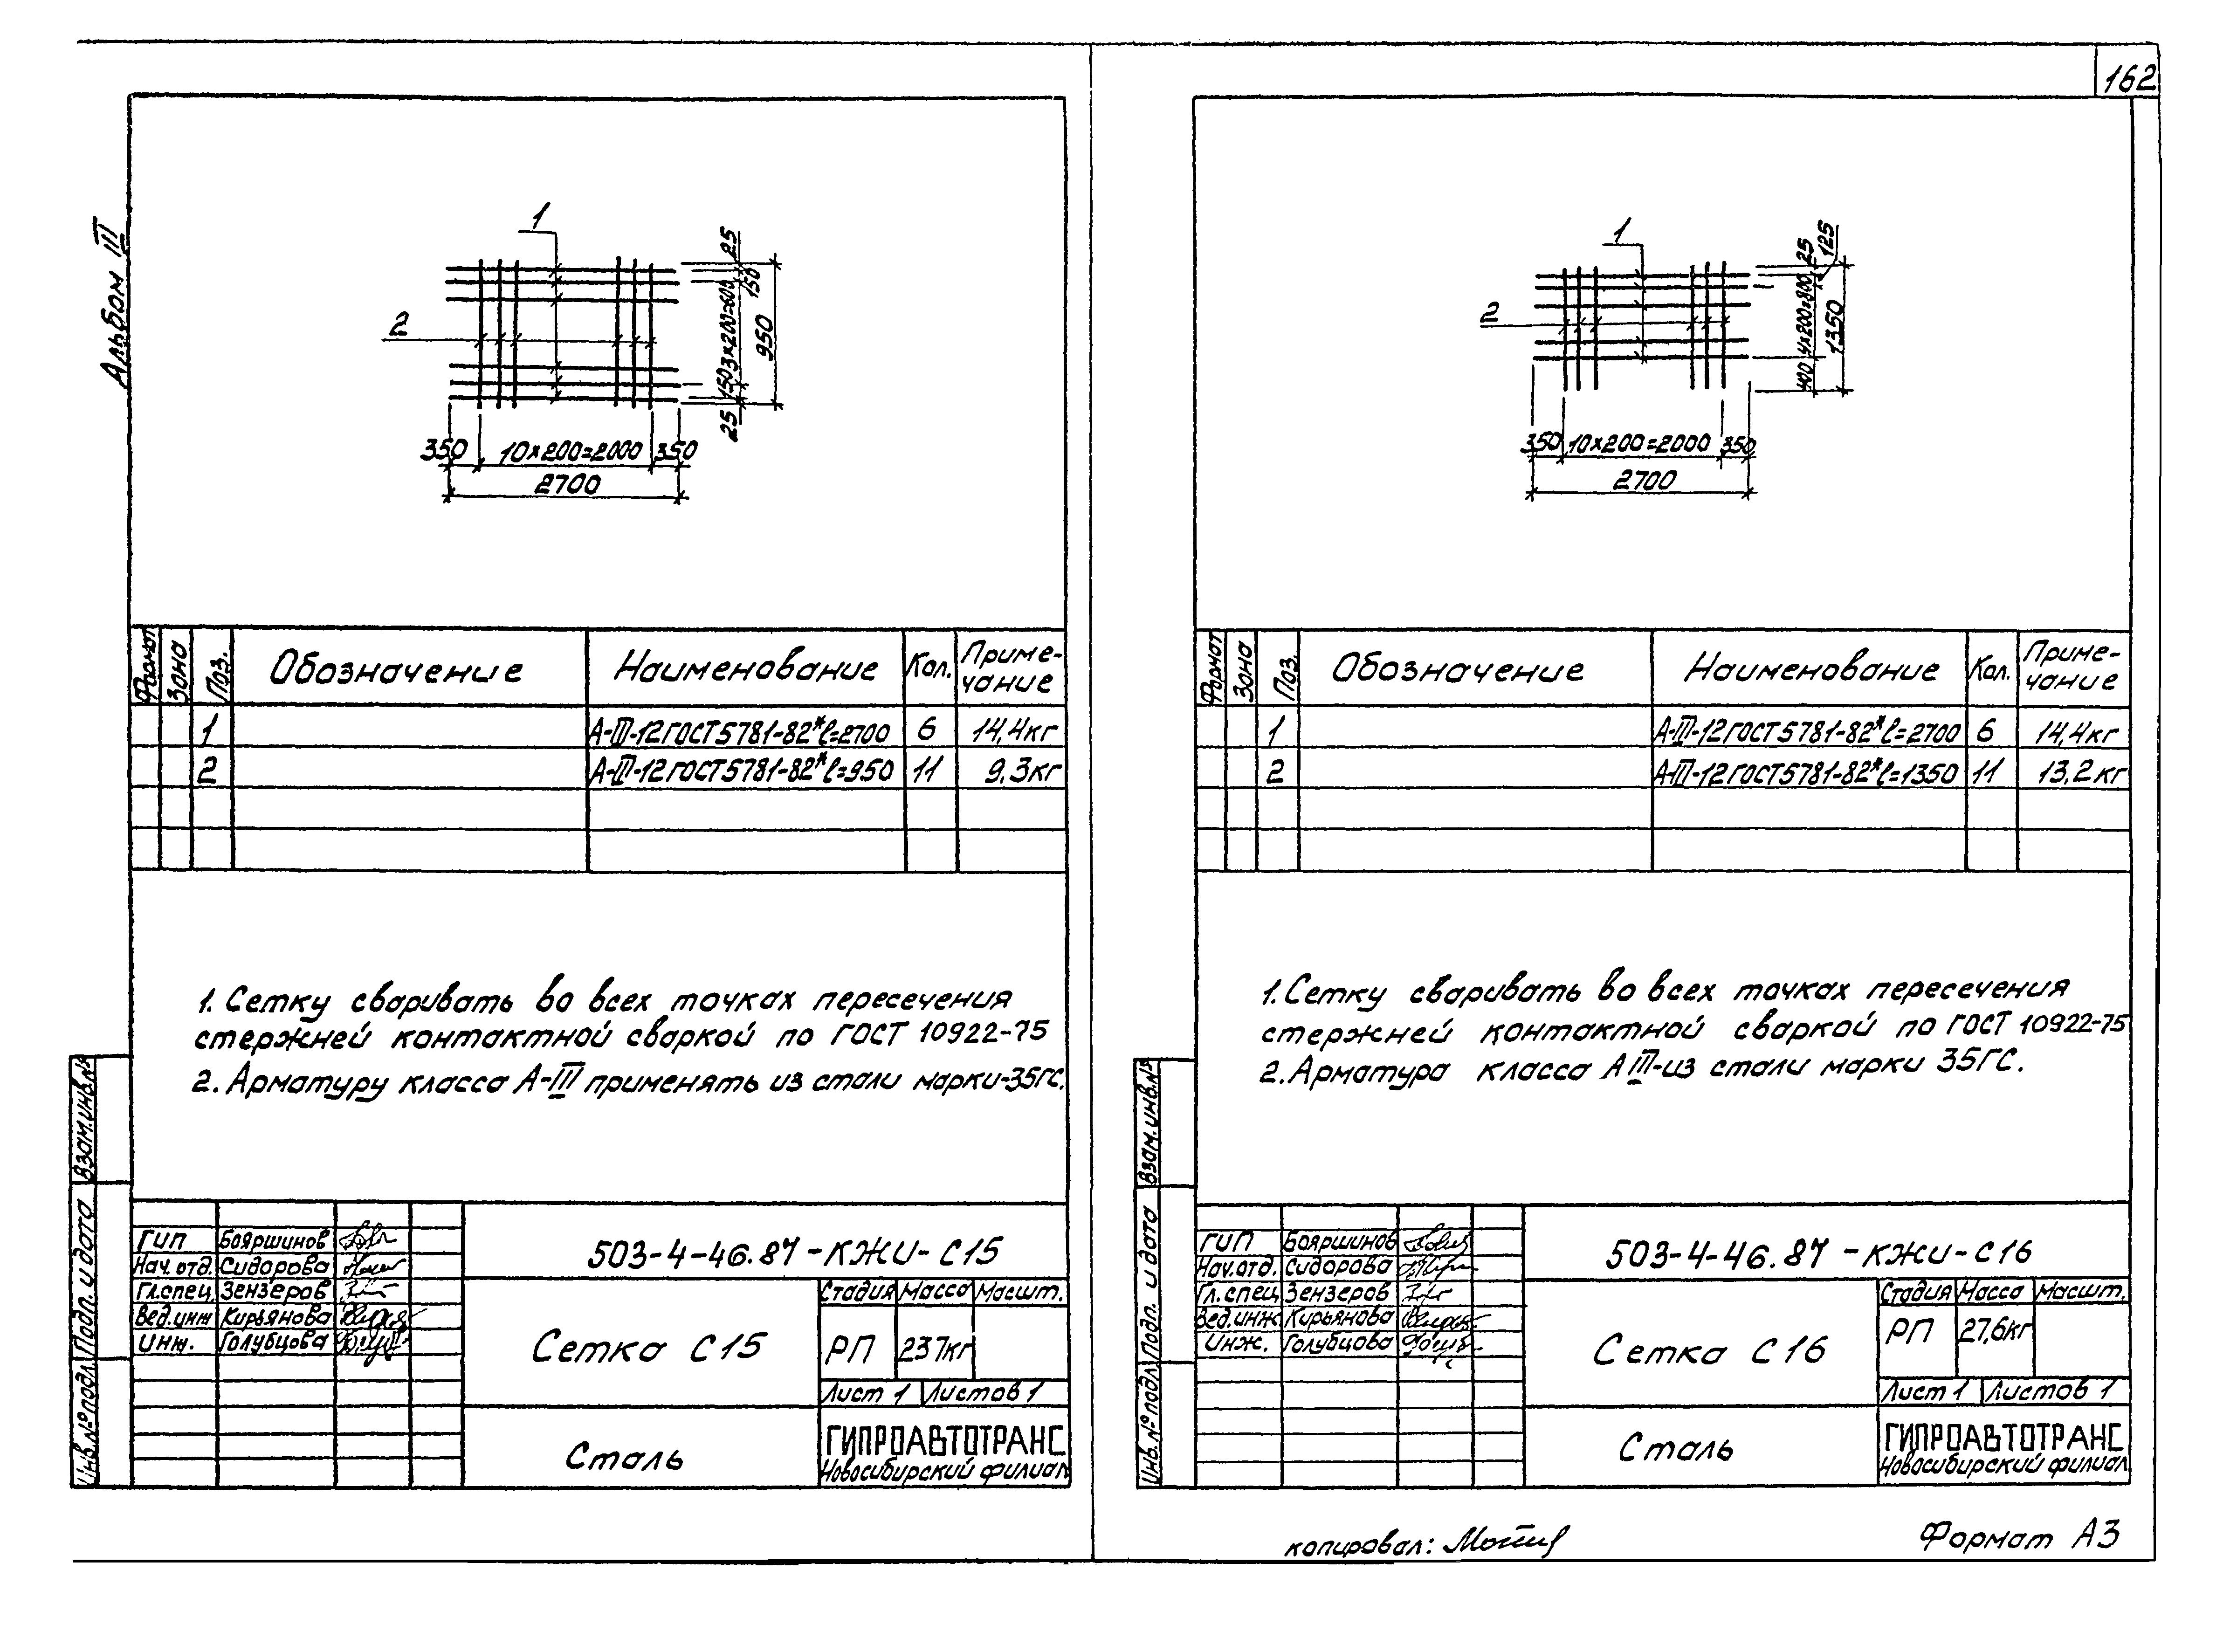 162
Альбом III
1
2
25
150
3×200=600
150
25
950
350 10×200=2000 350
2700
Формат Зона Поз. Обозначение Наименование Кол. Приме-
чание
1 А-III-12 ГОСТ 5781-82* ℓ=2700 6 14,4кг
2 А-III-12 ГОСТ 5781-82* ℓ=950 11 9,3кг
1. Сетку сваривать во всех точках пересечения
стержней контактной сваркой по ГОСТ 10922-75
2. Арматуру класса А-III применять из стали марки-35ГС.
Взам.инв.№
Подп. и дата
Инв.№подл
ГИП Бояршинов
Нач.отд. Сидорова
Гл.спец. Зензеров
Вед.инж Кирьянова
Инж. Голубцова
503-4-46.87-КЖИ-С15
Сетка С15
Стадия Масса Масшт.
РП 237кг
Лист 1 Листов 1
Сталь
ГИПРОАВТОТРАНС
Новосибирский филиал
1
2
25
125
4×200=800
400
1350
350 10×200=2000 350
2700
Формат Зона Поз. Обозначение Наименование Кол. Приме-
чание
1 А-III-12 ГОСТ 5781-82* ℓ=2700 6 14,4кг
2 А-III-12 ГОСТ 5781-82* ℓ=1350 11 13,2кг
1. Сетку сваривать во всех точках пересечения
стержней контактной сваркой по ГОСТ 10922-75
2. Арматура класса А III-из стали марки 35ГС.
Взам.инв.№
Подп. и дата
Инв.№подл
ГИП Бояршинов
Нач.отд. Сидорова
Гл.спец Зензеров
Вед.инж Кирьянова
Инж. Голубцова
503-4-46.87-КЖИ-С16
Сетка С16
Стадия Масса Масшт.
РП 27,6кг
Лист 1 Листов 1
Сталь
ГИПРОАВТОТРАНС
Новосибирский филиал
копировал:
Формат А3